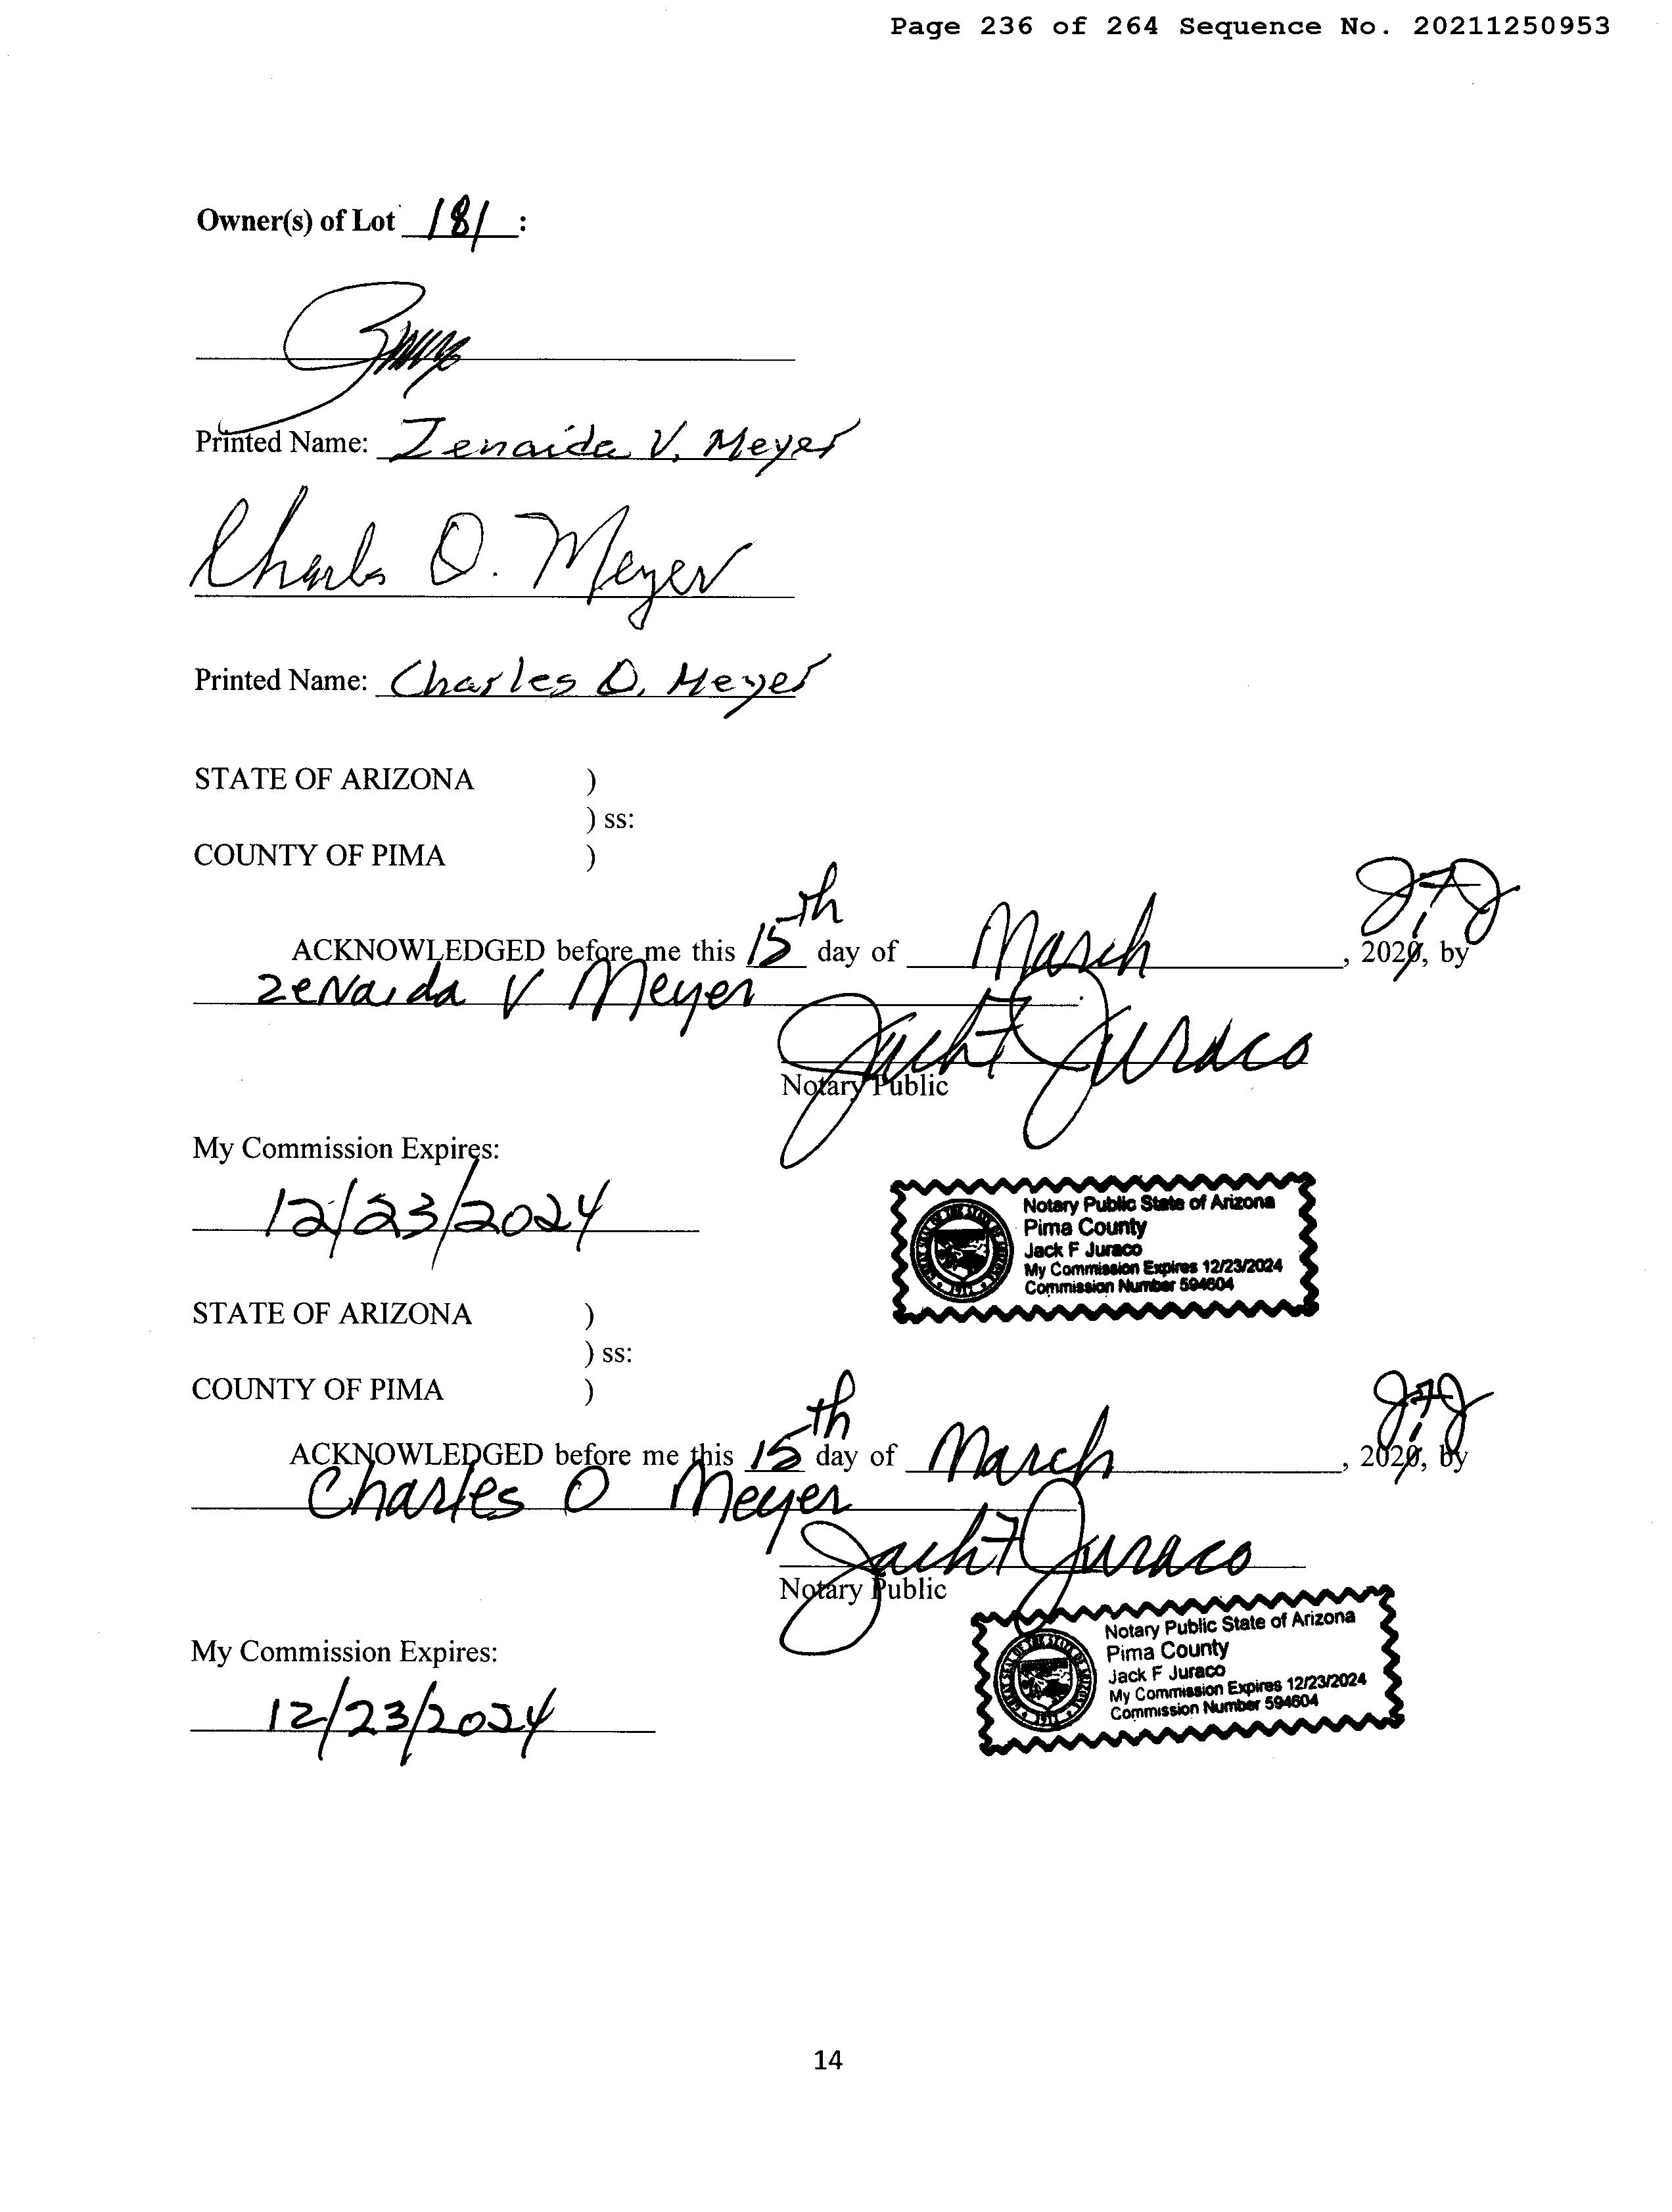 Page 236 of 264 Sequence No. 20211250953
Owner(s) of Lot 181 :
Printed Name: Zenaida V. Meyer
Charles O. Meyer
Printed Name: Charles O. Meyer
STATE OF ARIZONA )
) ss:
COUNTY OF PIMA )
JFJ
1
ACKNOWLEDGED before me this 15th day of March, 2020, by
Zenaida V Meyer
Jack F Juraco
Notary Public
My Commission Expires:
12/23/2024
Notary Public State of Arizona
Pima County
Jack F Juraco
My Commission Expires 12/23/2024
Commission Number 594604
STATE OF ARIZONA )
) ss:
COUNTY OF PIMA )
JFJ
1
ACKNOWLEDGED before me this 15th day of March, 2020, by
Charles O Meyer
Jack F Juraco
Notary Public
My Commission Expires:
12/23/2024
Notary Public State of Arizona
Pima County
Jack F Juraco
My Commission Expires 12/23/2024
Commission Number 594604
14